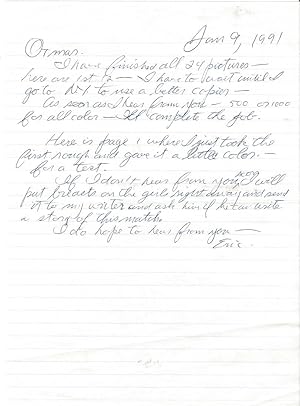 Jan 9, 1991
Ormar.
I have finished all 24 pictures —
here are 1st 12 — I have to wait until I
go to NY to use a better copier —
As soon as I hear from you — 500 or 1000
for all color — I'll complete the job.
Here is page 1 where I just took the
first rough and gave it a little color —
for a test.
If I don't hear from you, I will
put breasts on the girls right away and send
it to my writer and ask him if he can write
a story of this match
I do hope to hear from you —
Eric.